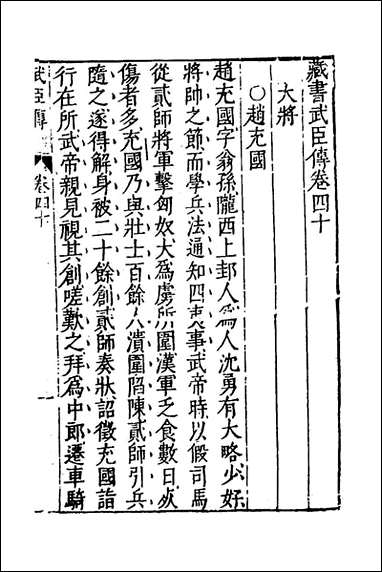 藏書武臣傳卷四十
大將
○趙充國
趙充國字翁孫隴西上邽人爲人沈勇有大略少好
將帥之節而學兵法通知四夷事武帝時以假司馬
從貳師將軍擊匈奴大爲虜所圍漢軍乏食數日死
傷者多充國乃與壯士百餘人潰圍陷陳貳師引兵
隨之遂得解身被二十餘創貳師奏狀詔徵充國詣
行在所武帝親見視其創嗟歎之拜爲中郎遷車騎
武臣傳
卷四十